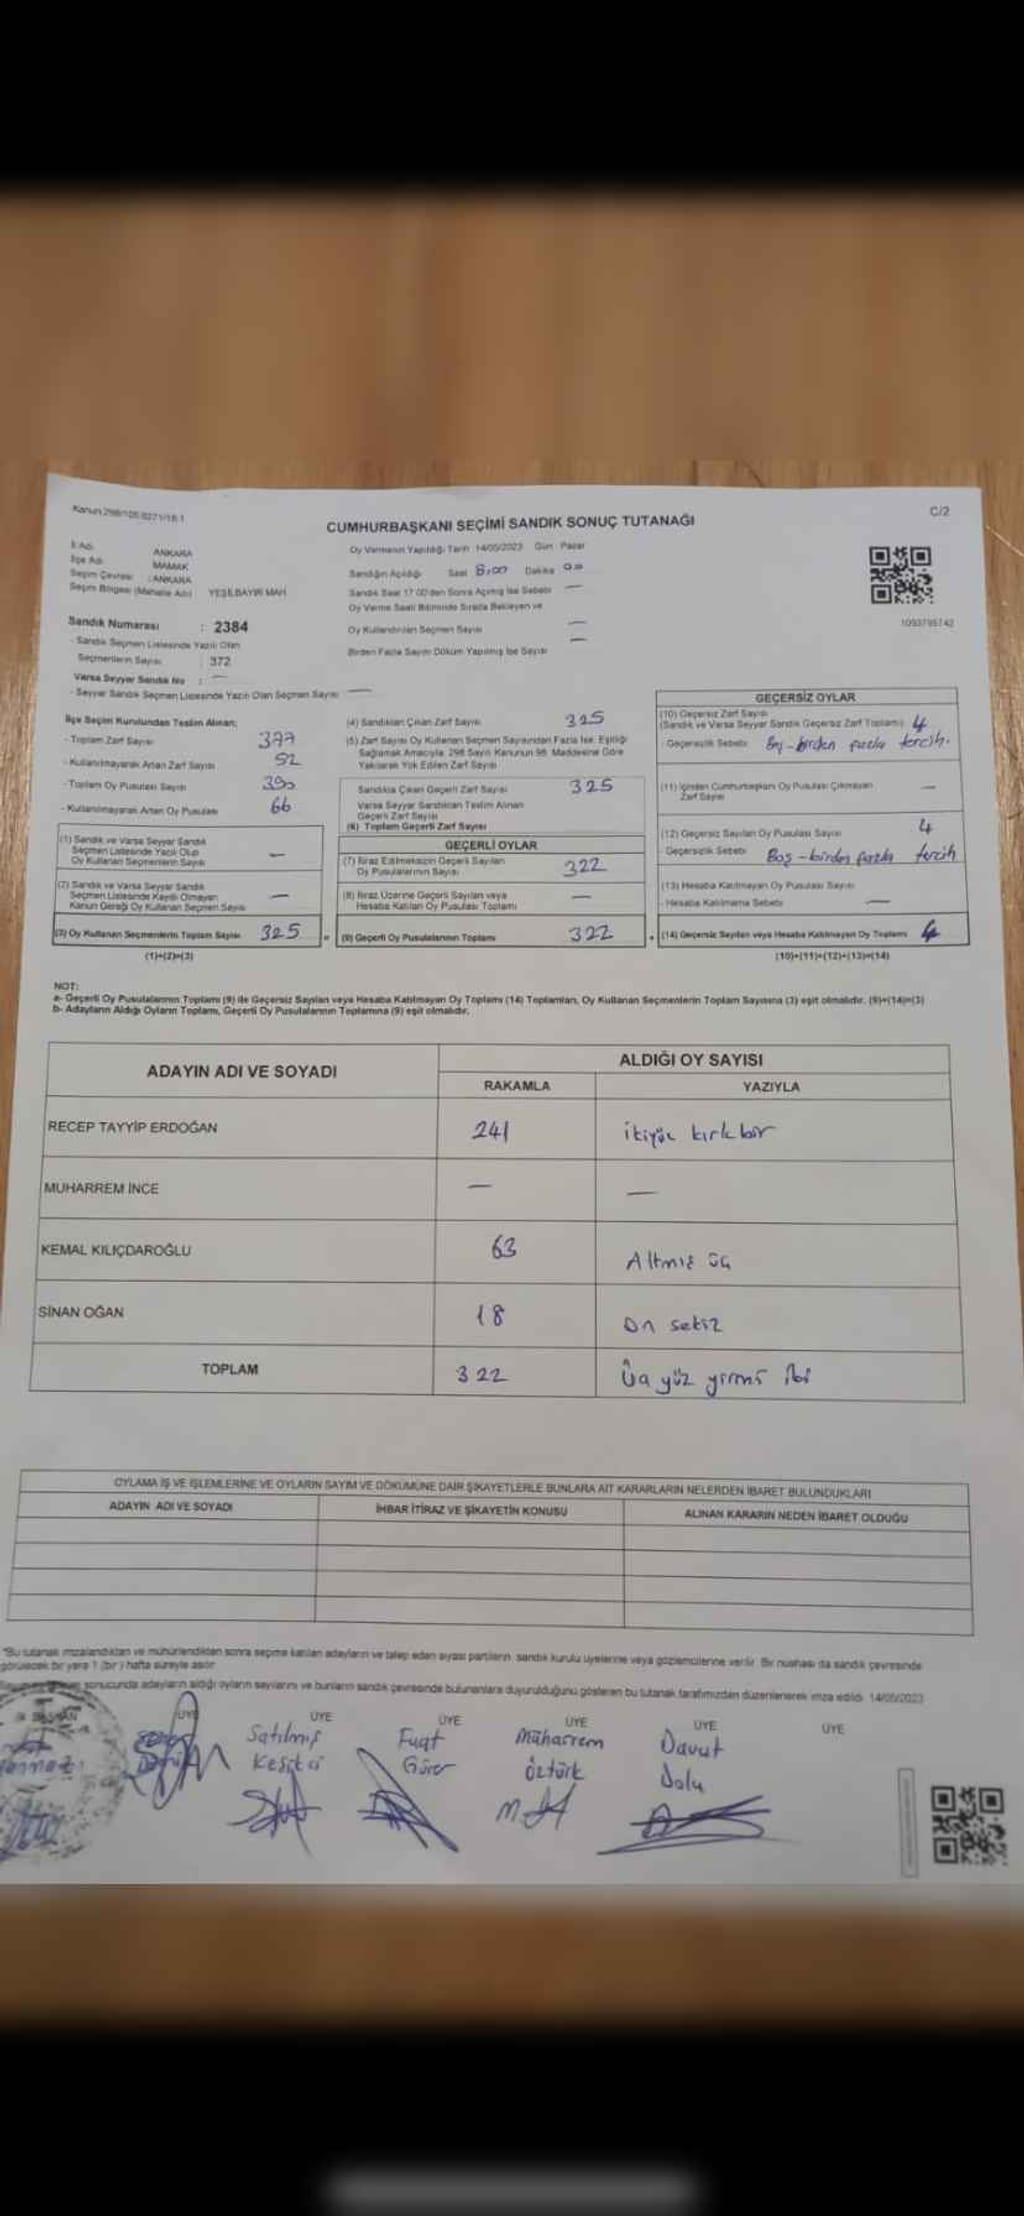 C/2
CUMHURBAŞKANI SEÇİMİ SANDIK SONUÇ TUTANAĞI
İl Adı ANKARA
İlçe Adı MAMAK
Seçim Çevresi : ANKARA
Seçim Bölgesi (Mahalle Adı) YEŞİLBAYIR MAH
Sandık Numarası : 2384
- Sandık Seçmen Listesinde Yazılı Olan
Seçmenlerin Sayısı : 372
Varsa Seyyar Sandık No : —
- Seyyar Sandık Seçmen Listesinde Yazılı Olan Seçmen Sayısı —
Oy Vermenin Yapıldığı Tarih 14/05/2023 Gün Pazar
Sandığın Açıldığı Saat 8:00 Dakika 00
Sandık Saat 17:00'den Sonra Açılmış İse Sebebi —
Oy Verme Saati Bitiminde Sırada Bekleyen ve
Oy Kullandırılan Seçmen Sayısı —
Birden Fazla Sayım Döküm Yapılmış İse Sayısı —
1093795742
İlçe Seçim Kurulundan Teslim Alınan;
- Toplam Zarf Sayısı 377
- Kullanılmayarak Artan Zarf Sayısı 52
- Toplam Oy Pusulası Sayısı 390
- Kullanılmayarak Artan Oy Pusulası 66
(1) Sandık ve Varsa Seyyar Sandık
Seçmen Listesinde Yazılı Olup
Oy Kullanan Seçmenlerin Sayısı —
(2) Sandık ve Varsa Seyyar Sandık
Seçmen Listesinde Kayıtlı Olmayan
Kanun Gereği Oy Kullanan Seçmen Sayısı —
(3) Oy Kullanan Seçmenlerin Toplam Sayısı 325
(1)+(2)=(3)
(4) Sandıktan Çıkan Zarf Sayısı 325
(5) Zarf Sayısı Oy Kullanan Seçmen Sayısından Fazla İse, Eşitliği
Sağlamak Amacıyla, 298 Sayılı Kanunun 98. Maddesine Göre
Yakılarak Yok Edilen Zarf Sayısı
Sandıkta Çıkan Geçerli Zarf Sayısı 325
Varsa Seyyar Sandıktan Teslim Alınan
Geçerli Zarf Sayısı
(6) Toplam Geçerli Zarf Sayısı
GEÇERLİ OYLAR
(7) İtiraz Edilmeksizin Geçerli Sayılan
Oy Pusulalarının Sayısı 322
(8) İtiraz Üzerine Geçerli Sayılan veya
Hesaba Katılan Oy Pusulası Toplamı —
(9) Geçerli Oy Pusulalarının Toplamı 322
GEÇERSİZ OYLAR
(10) Geçersiz Zarf Sayısı
(Sandık ve Varsa Seyyar Sandık Geçersiz Zarf Toplamı) 4
- Geçersizlik Sebebi Boş-birden fazla tercih.
(11) İçinden Cumhurbaşkanı Oy Pusulası Çıkmayan
Zarf Sayısı —
(12) Geçersiz Sayılan Oy Pusulası Sayısı 4
- Geçersizlik Sebebi Boş-birden fazla tercih
(13) Hesaba Katılmayan Oy Pusulası Sayısı
- Hesaba Katılmama Sebebi —
(14) Geçersiz Sayılan veya Hesaba Katılmayan Oy Toplamı 4
(10)+(11)+(12)+(13)=(14)
NOT:
a- Geçerli Oy Pusulalarının Toplamı (9) ile Geçersiz Sayılan veya Hesaba Katılmayan Oy Toplamı (14) Toplamları, Oy Kullanan Seçmenlerin Toplam Sayısına (3) eşit olmalıdır. (9)+(14)=(3)
b- Adayların Aldığı Oyların Toplamı, Geçerli Oy Pusulalarının Toplamına (9) eşit olmalıdır.
ADAYIN ADI VE SOYADI ALDIĞI OY SAYISI
RAKAMLA YAZIYLA
RECEP TAYYİP ERDOĞAN 241 ikiyüz kırk bir
MUHARREM İNCE — —
KEMAL KILIÇDAROĞLU 63 Altmış üç
SİNAN OĞAN 18 On sekiz
TOPLAM 322 Üç yüz yirmi iki
OYLAMA İŞ VE İŞLEMLERİNE VE OYLARIN SAYIM VE DÖKÜMÜNE DAİR ŞİKAYETLERLE BUNLARA AİT KARARLARIN NELERDEN İBARET BULUNDUKLARI
ADAYIN ADI VE SOYADI İHBAR İTİRAZ VE ŞİKAYETİN KONUSU ALINAN KARARIN NEDEN İBARET OLDUĞU
"Bu tutanak imzalandıktan ve mühürlendikten sonra seçime katılan adayların ve talep eden siyasi partilerin, sandık kurulu üyelerine veya gözlemcilerine verilir. Bir nüshası da sandık çevresinde
görülecek bir yere 1 (bir) hafta süreyle asılır
sonucunda adayların aldığı oyların sayılarını ve bunların sandık çevresinde bulunanlara duyurulduğunu gösteren bu tutanak tarafımızdan düzenlenerek imza edildi. 14/05/2023
BAŞKAN ÜYE ÜYE ÜYE ÜYE ÜYE ÜYE
Satılmış Fuat Muharrem Davut
Gürer Öztürk Dolu